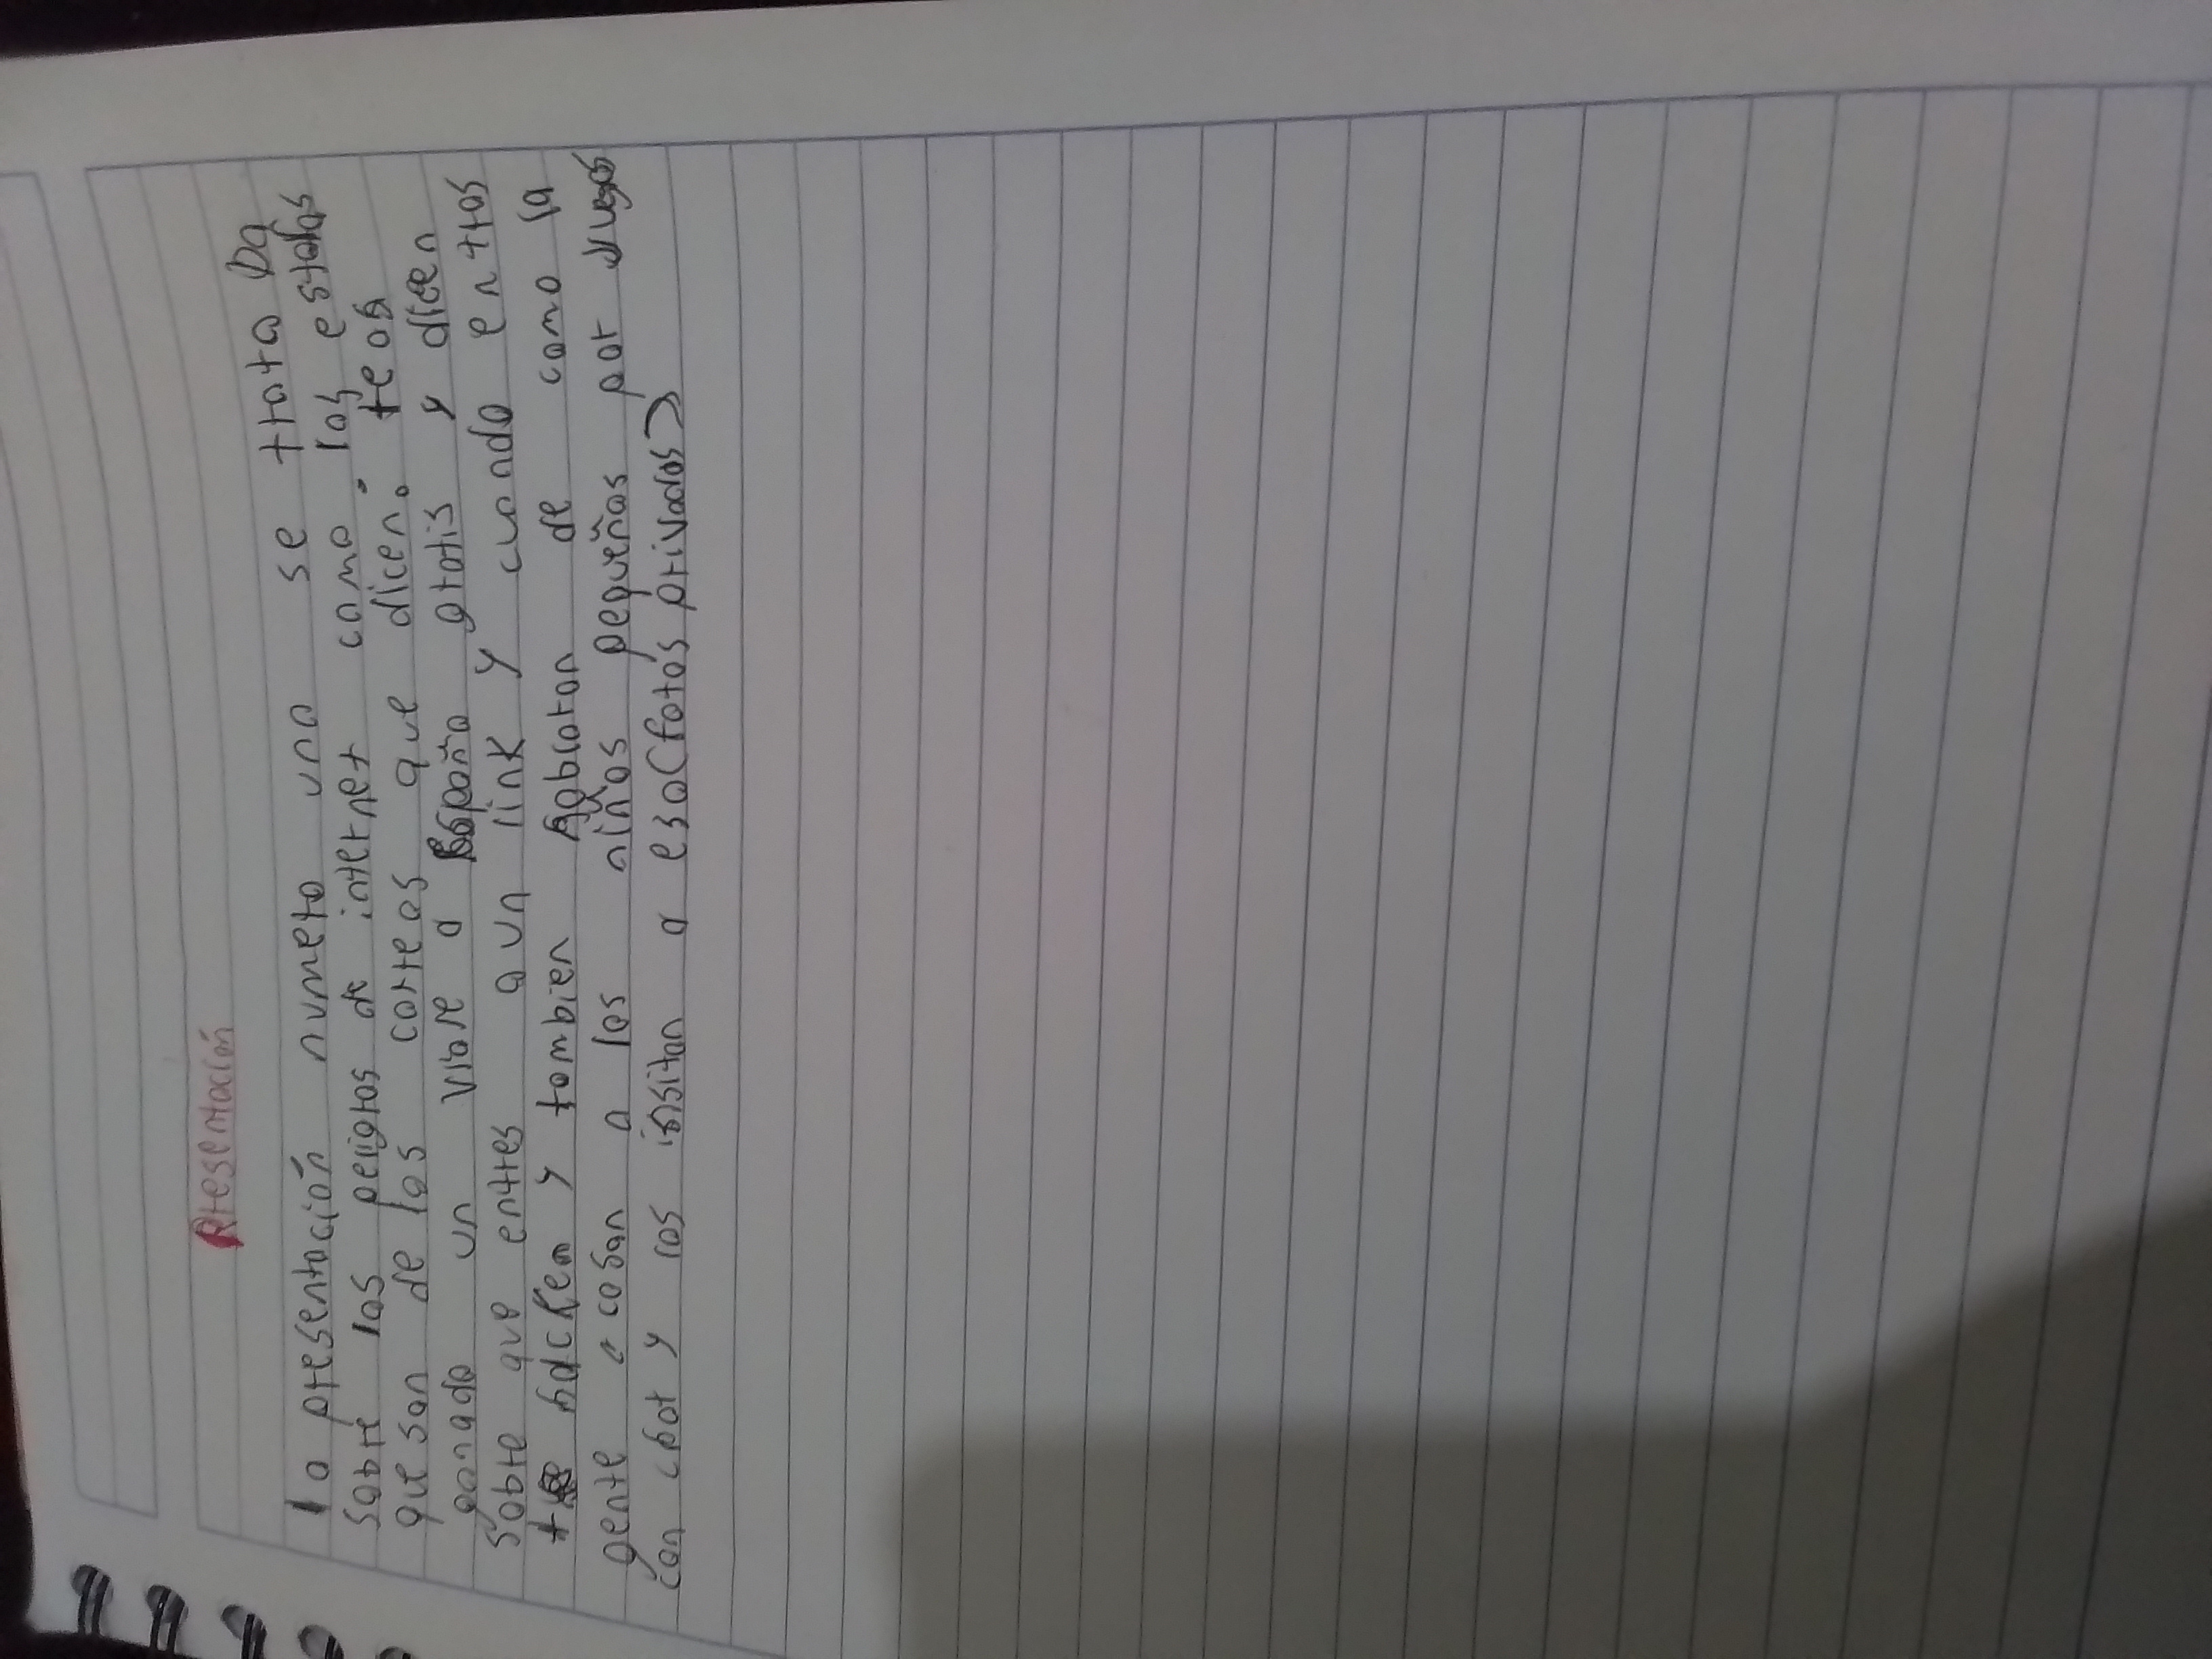 Presentación
la presentación numero uno se trata Da
sobre los peligros de internet como las estafas
que son de los correos que dicen: te as
ganado un viaje a España gratis y dicen
sobre que entres a un link y cuando entras
te hackean y tambien hablaron de como la
gente acosan a los niños pequeños por juegos
con chat y los insitan a eso(fotos privadas)